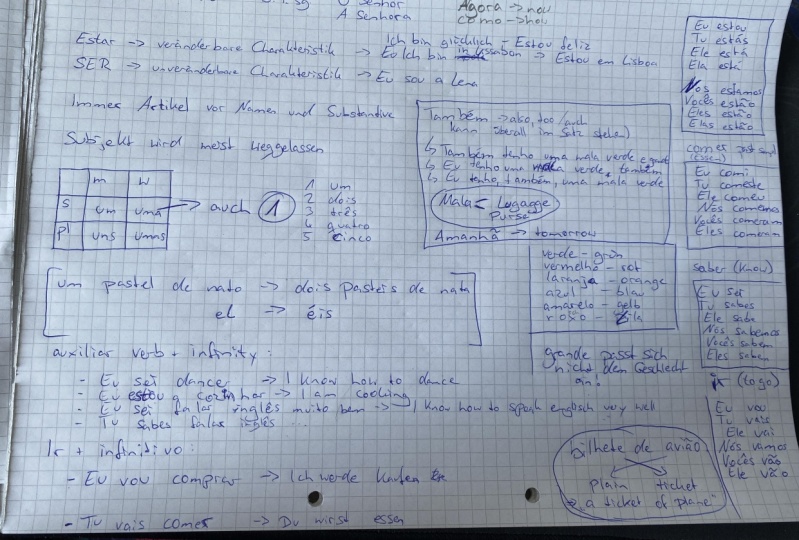 O Senhor
A Senhora
Agora -> now
como -> how
Estar -> veränderbare Charakteristik -> Ich bin glücklich - Estou feliz
Eu Ich bin in Lissabon -> Estou em Lisboa
SER -> unveränderbare Charakteristik -> Eu sou a Lena
Immer Artikel vor Namen und Substantive
Subjekt wird meist weggelassen
m w
s um uma -> auch 1
pl uns umas
1 um
2 dois
3 três
4 quatro
5 cinco
Também -> also, too / auch
kann überall im Satz stehen)
↳ Também tenho uma mala verde
↳ Eu tenho uma mala verde, também
↳ Eu tenho, também, uma mala verde
Mala < Lugagge
Purse
Amanhã -> tomorrow
verde - grün
vermelho - rot
laranja - orange
azul - blau
amarelo - gelb
roxo - lila
grande passt sich
nicht dem Geschlecht
an!
[um pastel de nata -> dois pasteis de nata
el -> éis]
auxiliar verb + infinity:
- Eu sei dancer -> I know how to dance
- Eu estou a cozinhar -> I am cooking
- Eu sei falar inglês muito bem -> I know how to speak english very well
- Tu sabes falas inglês ...
Ir + infinitivo:
- Eu vou comprar -> Ich werde kaufen
- Tu vais comer -> Du wirst essen
bilhete de avião
plain ticket
-> a ticket of plane
Eu estou
Tu estás
Ele está
Ela está
Nós estamos
Vocês estão
Eles estão
Elas estão
comer
(essen)
Eu comi
Tu comeste
Ele comeu
Nós comemos
Vocês comeram
Eles comeram
saber (know)
Eu sei
Tu sabes
Ele sabe
Nós sabemos
Vocês sabem
Eles sabem
ir (to go)
Eu vou
Tu vais
Ele vai
Nós vamos
Vocês vão
Ele vão